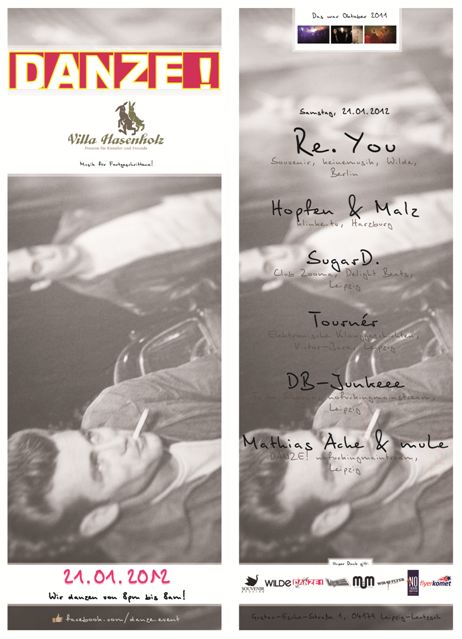 DANZE!
Villa Hasenholz
Pension für Künstler und Freunde
Musik für Fortgeschrittene!
21.01.2012
Wir danzen von 8pm bis 8am!
facebook.com/danze.event
Das war Oktober 2011
Samstag, 21.01.2012
Re.You
Souvenir, keinemusik, Wilde,
Berlin
Hopfen & Malz
klinkerto, Harzburg
SugarD.
Club Zooma, Delight Beats,
Leipzig
Tournér
Elektronische
Leipzig
DB-Junkeee
nofuckingmainstream,
Leipzig
Mathias Ache & mule
DANZE! nofuckingmainstream,
Leipzig
Unser Dank gilt:
SOUVENIR
WILDE
DANZE!
NO
flyerkomet
04179 Leipzig-Leutzsch